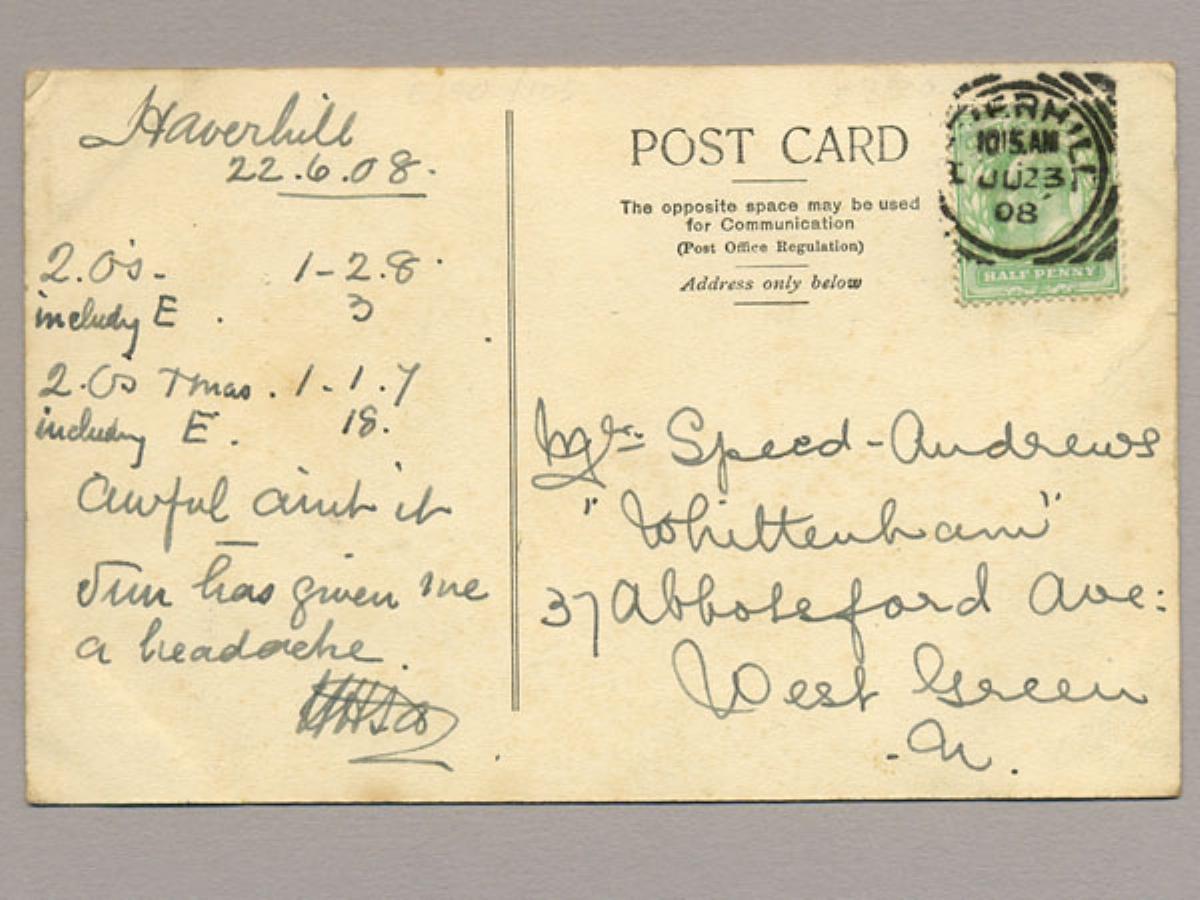 Haverhill
22.6.08.
2.0's- 1-2.8.
includg E . 3
2.0s Tmas. 1-1.7
including E. 18.
Awful aint it
Sun has given me
a headache.
POST CARD
The opposite space may be used
for Communication
(Post Office Regulation)
Address only below
10 15 AM
JU 23
08
HALF PENNY
Mrs Speed-Andrews
"Whittenham"
37 Abbotsford Ave:
West Green
N.